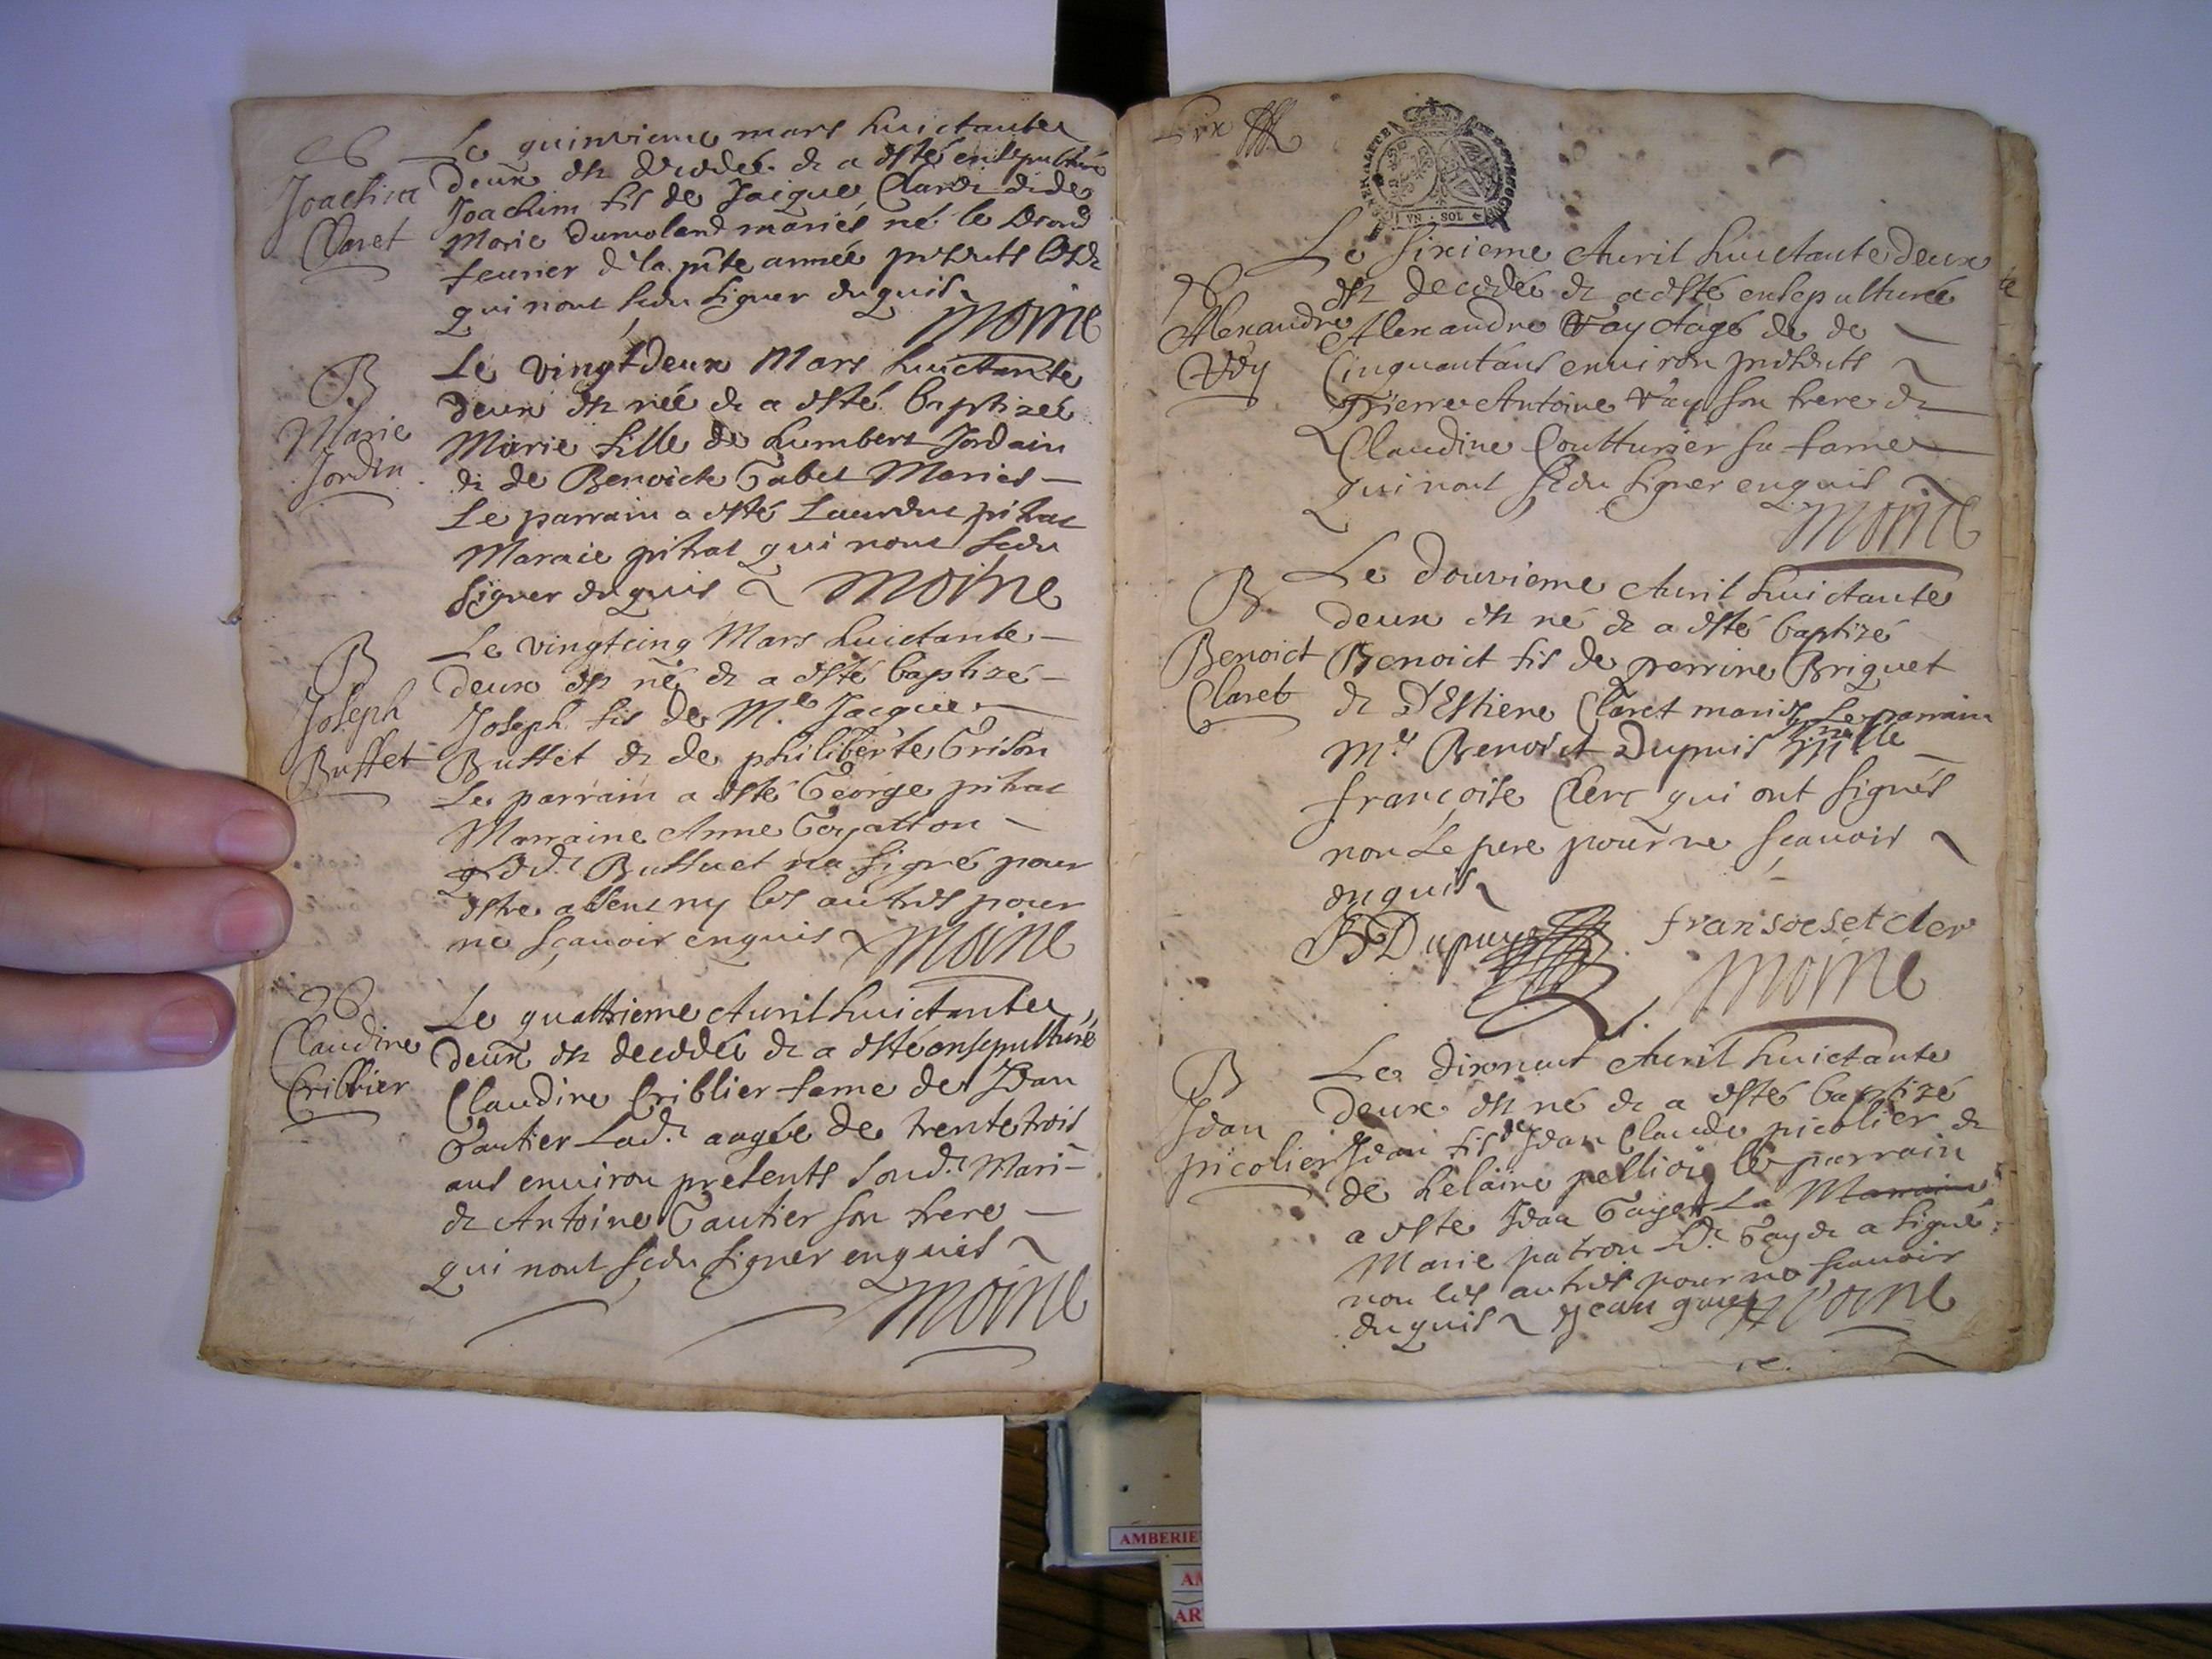 Joachim
Claret
Le quinvieme mars huictante
deux est decedé et a esté ensepulturé
Joachim fils de Jacque Claret et de
Marie Dumoland mariés né le second
feurier de la pnte année presents
qui nont sceu signer enquis
Moine
B
Marie
Jordin
Le vingtdeux Mars huictante
deux est néé et a esté baptizéé
Marie fille de humbert Jordain
et de Benoicte Gabet Mariés
Le parrain a esté Laurent pitrat
Maraie pitrat qui nont sceu
signer enquis Moine
B
Joseph
Buffet
Le vingtcinq Mars huictante
deux est né et a esté baptizé
Joseph fils de M.e Jacque
Buffet et de philiberte Grison
Le parrain a esté George pitrat
Marraine Anne
Buffuet na signé pour
estre absent ny les autres pour
ne sçauoir enquis Moine
Claudine
Criblier
Le quattrieme Auril huictante
deux est decedéé et a esté ensepulturé
Claudine Criblier fame de Jean
Gautier Lad.e aagéé de trentetrois
ans enuiron presents Sond.t Mari
et Antoine Gautier son frere
qui nont sceu signer enquis
Moine
VN · SOL
Alexandre
Vay
Le sixieme Auril huictante deux
est decedéé et a esté ensepulturéé
Alexandre Vay aagé de de
Cinquantans enuiron presents
Pierre Antoine Vay son frere et
Claudine Coutturier sa fame
qui nont sceu signer enquis
Moine
B
Benoict
Claret
Le douvieme Auril huictante
deux est né et a esté baptizé
Benoict fils de perrine Briquet
et d'Estiene Claret mariés Le parrain
M.e Benoict Dupuis
françoise Clerc qui ont signés
non Le pere pour ne sçauoir
enquis
B Dupuys fransoesetcler
Moine
B
Jean
picolier
Le dixneuf Auril huictante
deux est né et a esté baptizé
Jean fils de Jean Claude picolier et
de helaine pellion le parrain
a esté Jean Gayet La Marraine
Marie patron Led.t Gayet a signé
non les autres pour ne scauoir
enquis Jean gaiet Moine
AMBERIE
AM
AR